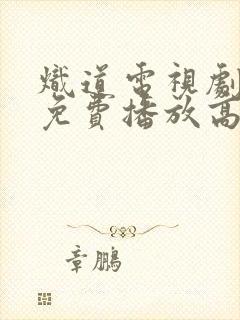 熾道電視劇
免費播放高
章鵬